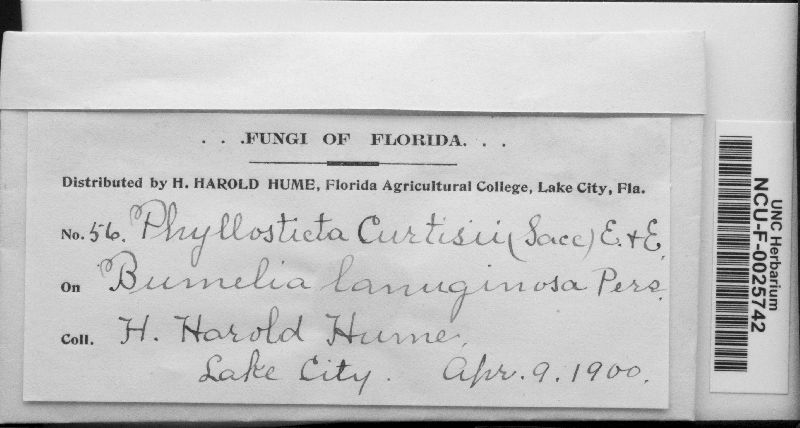 . . .FUNGI OF FLORIDA. . .
Distributed by H. HAROLD HUME, Florida Agricultural College, Lake City, Fla.
No. 56. Phyllosticta Curtisii (Sacc) E. & E.
On Bumelia lanuginosa Pers.
Coll. H. Harold Hume,
Lake City. Apr. 9. 1900.
UNC Herbarium
NCU-F-0025742